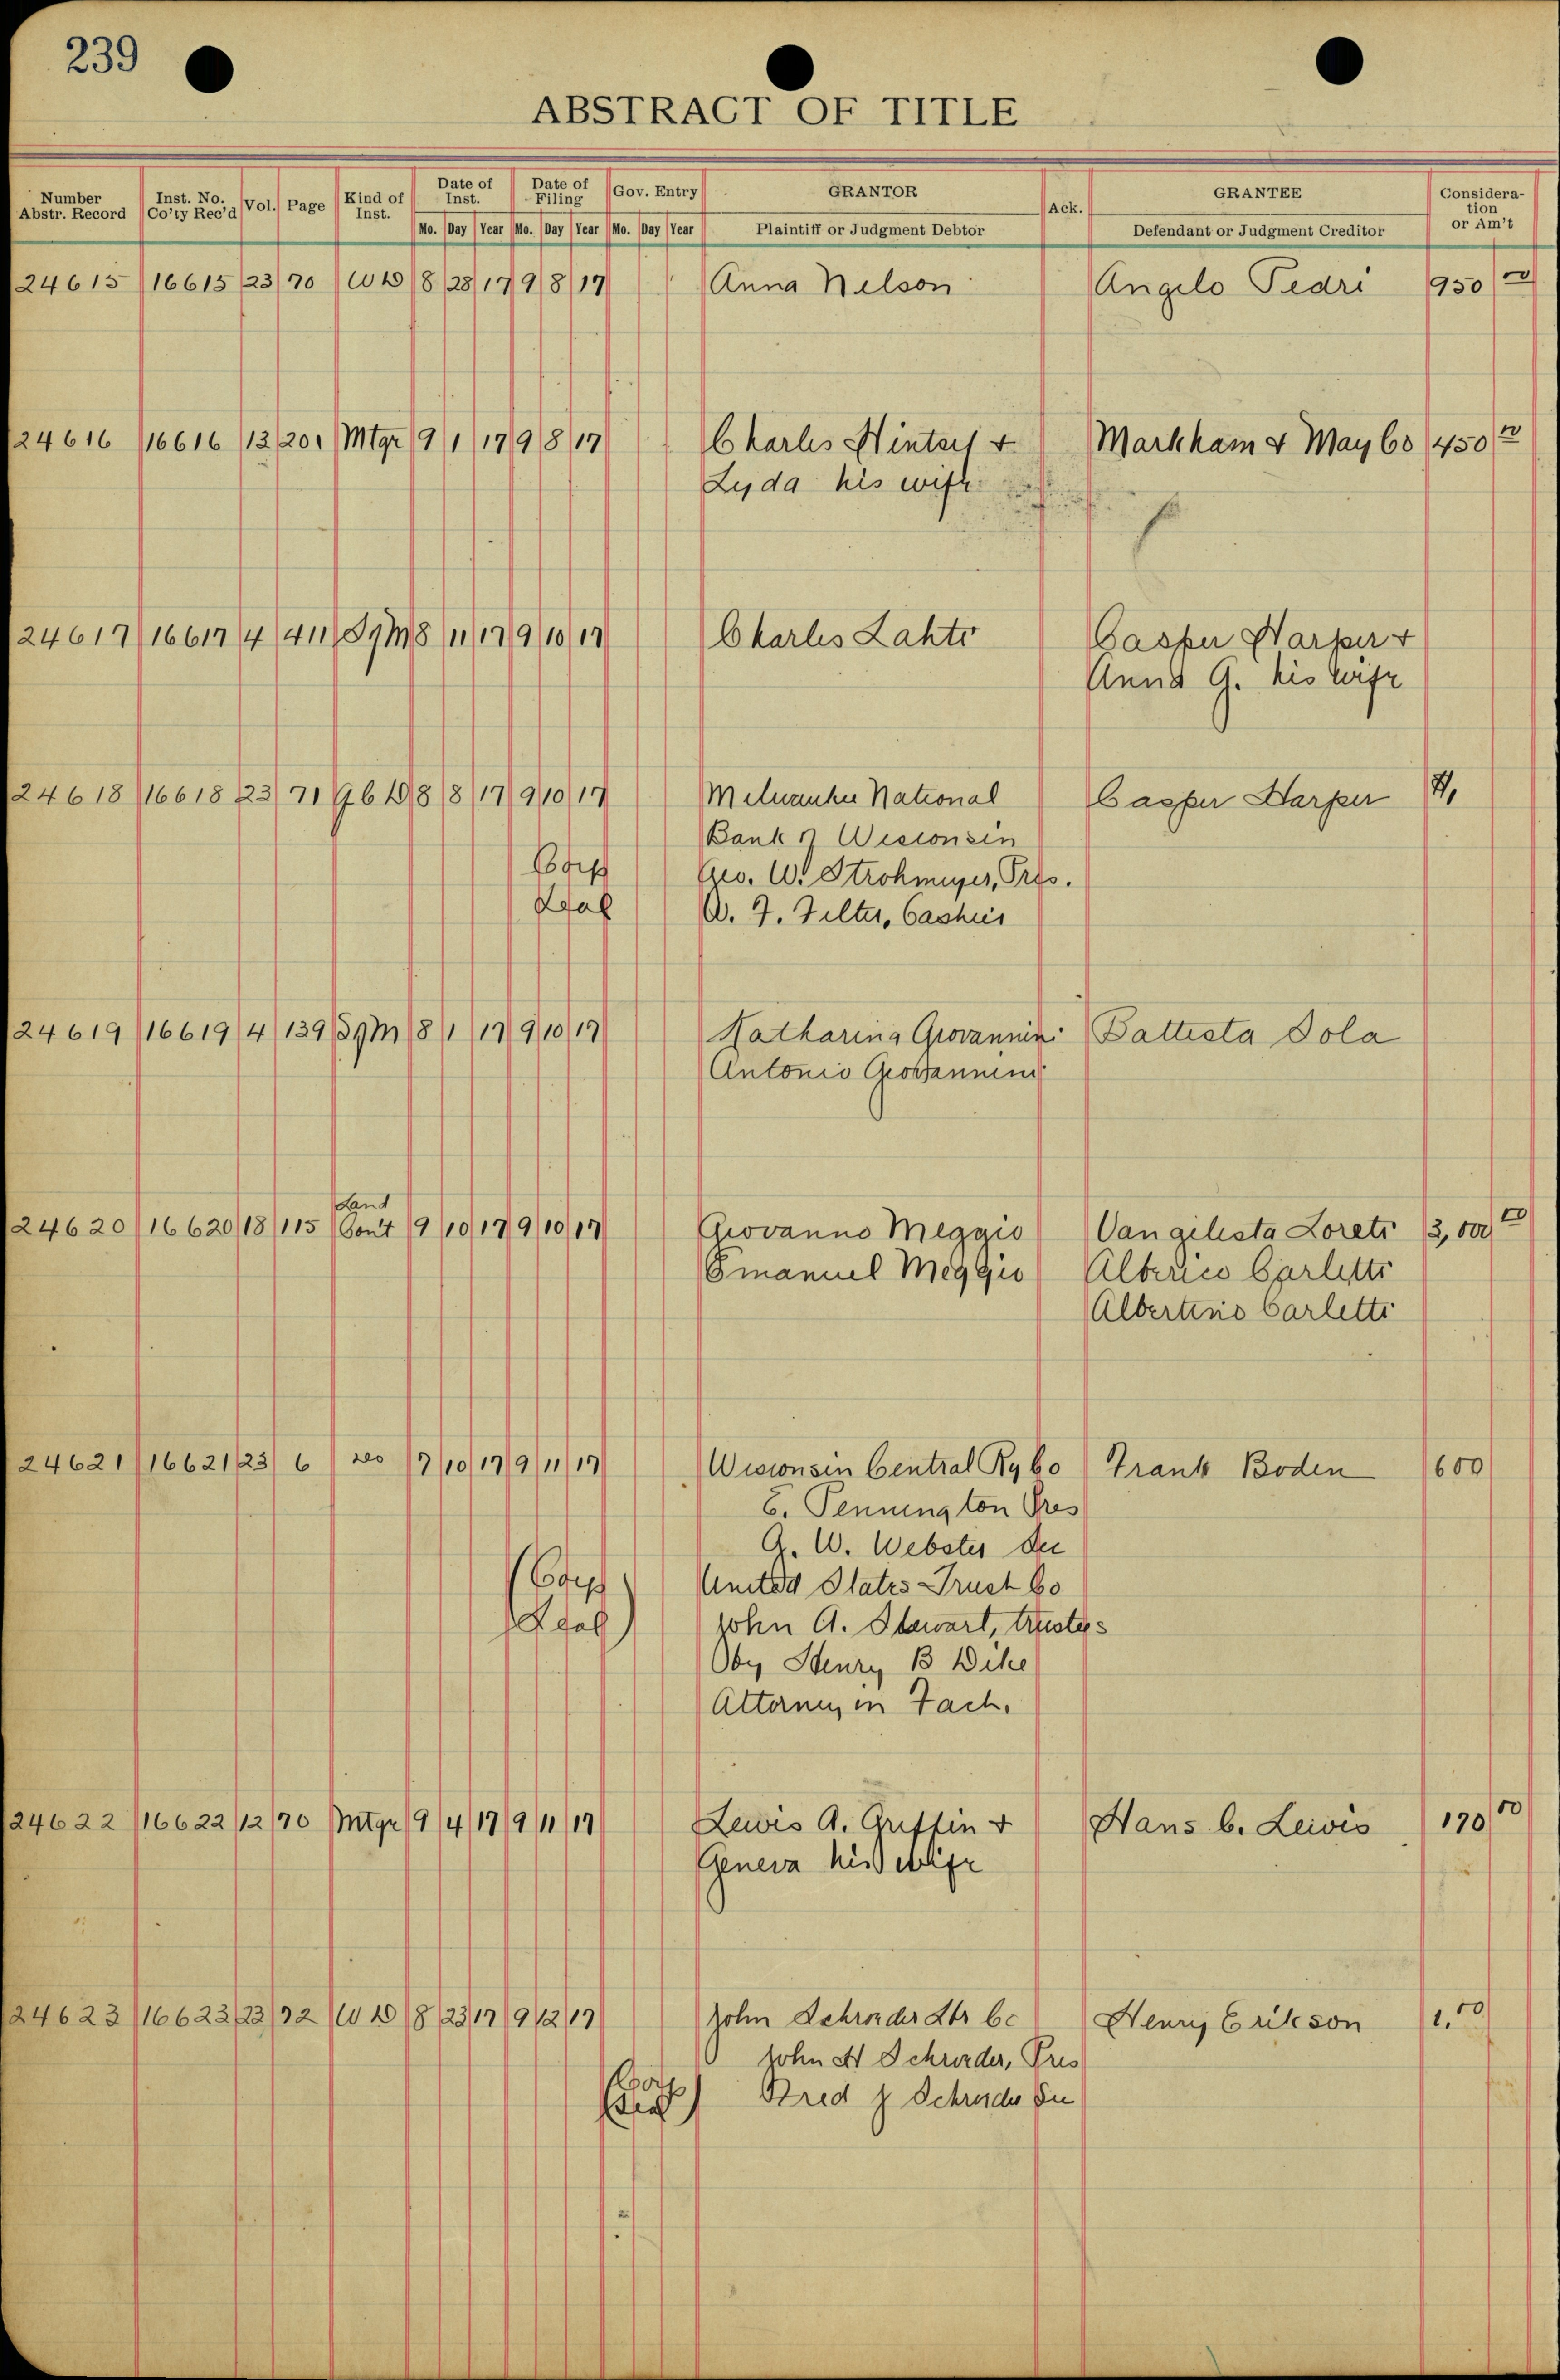 239
ABSTRACT OF TITLE
Number Abstr. Record Inst. No. Co'ty Rec'd Vol. Page Kind of Inst. Date of Inst. Date of Filing Gov. Entry GRANTOR Ack. GRANTEE Consideration or Am't
Mo. Day Year Mo. Day Year Mo. Day Year Plaintiff or Judgment Debtor Defendant or Judgment Creditor
24615 16615 23 70 W D 8 28 17 9 8 17 Anna Nelson Angelo Pedri 950
24616 16616 13 201 Mtge 9 1 17 9 8 17 Charles &
Lyda his wife
Markham & May Co 450
24617 16617 4 8 11 17 9 10 17 Charles Lahti Casper Harper &
Anna G. his wife
24618 16618 23 71 8 8 17 9 10 17 Milwaukee National Casper Harper
Bank of Wisconsin
Corp Geo. W. Strohmeyer, Pres.
Seal W. F. Filter, Cashier
24619 16619 4 139 8 1 17 9 10 17 Katharina Giovannini Battista Dola
Antonio Giovannini
Land
24620 16620 18 115 Cont 9 10 17 9 10 17 Giovanno Meggio Vangelista Loreti 3,000
Emanuel Meggio Alberico Carletti
Albertino Carletti
24621 16621 23 6 10 17 9 11 17 Wisconsin Central Ry Co Frank Boden 600
E. Pennington Pres
G. W. Webster Sec
(Corp United States Trust Co
Seal) John A. Stewart, trustees
By Henry B Wike
Attorney in Fact.
24622 16622 12 70 Mtge 9 4 17 9 11 17 Lewis A. Griffin & Hans C. Leivis 170
Geneva his wife
24623 16623 23 72 W D 8 23 17 9 12 17 John Schroeder Lbr Co Henry Erikson 1.00
John H Schroeder, Pres
(Corp Seal) Fred J Schroeder Sec